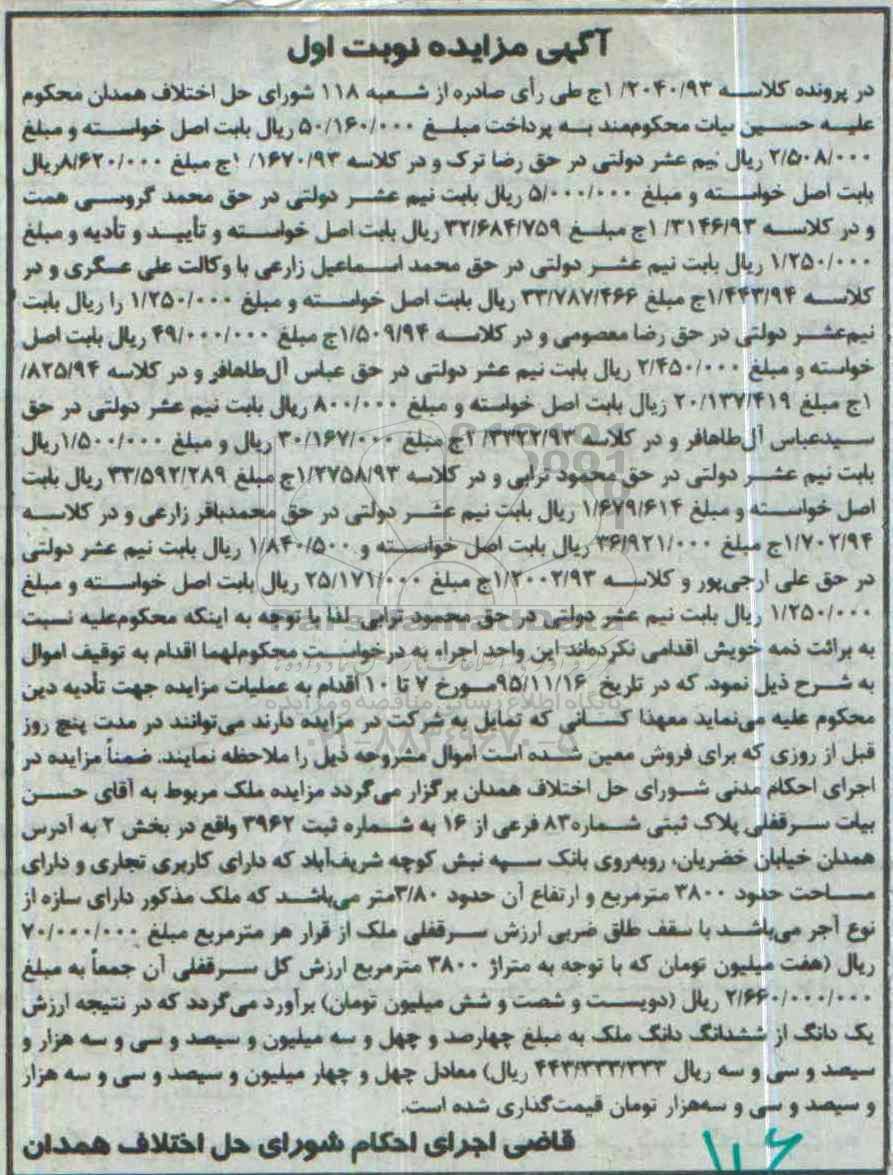 آگهی مزایده نوبت اول
در پرونده کلاسه ۲۰۴۰/۹۳/ ۱ج طی رأی صادره از شعبه ۱۱۸ شورای حل اختلاف همدان محکوم
علیه حسین بیات محکوم‌مند به پرداخت مبلغ ۵۰/۱۶۰/۰۰۰ ریال بابت اصل خواسته و مبلغ
۲/۵۰۸/۰۰۰ ریال نیم عشر دولتی در حق رضا ترک و در کلاسه ۱۶۷۰/۹۳/ ۱ج مبلغ ۸/۶۲۰/۰۰۰ریال
بابت اصل خواسته و مبلغ ۵/۰۰۰/۰۰۰ ریال بابت نیم عشر دولتی در حق محمد گروسی همت
و در کلاسه ۳۱۴۶/۹۳/ ۱ج مبلغ ۳۲/۶۸۴/۷۵۹ ریال بابت اصل خواسته و تأیید و تأدیه و مبلغ
۱/۲۵۰/۰۰۰ ریال بابت نیم عشر دولتی در حق محمد اسماعیل زارعی با وکالت علی عسگری و در
کلاسه ۱/۴۴۳/۹۴ج مبلغ ۳۳/۷۸۷/۴۶۶ ریال بابت اصل خواسته و مبلغ ۱/۲۵۰/۰۰۰ را ریال بابت
نیم‌عشر دولتی در حق رضا معصومی و در کلاسه ۱/۵۰۹/۹۴ج مبلغ ۴۹/۰۰۰/۰۰۰ ریال بابت اصل
خواسته و مبلغ ۲/۴۵۰/۰۰۰ ریال بابت نیم عشر دولتی در حق عباس آل‌طاهافر و در کلاسه ۸۲۵/۹۴/
۱ج مبلغ ۲۰/۱۳۷/۴۱۹ ریال بابت اصل خواسته و مبلغ ۸۰۰/۰۰۰ ریال بابت نیم عشر دولتی در حق
سیدعباس آل‌طاهافر و در کلاسه ۳۳۲۲/۹۳/ ۲ج مبلغ ۳۰/۱۶۷/۰۰۰ ریال و مبلغ ۱/۵۰۰/۰۰۰ریال
بابت نیم عشر دولتی در حق محمود ترابی و در کلاسه ۱/۲۷۵۸/۹۳ج مبلغ ۳۳/۵۹۲/۲۸۹ ریال بابت
اصل خواسته و مبلغ ۱/۶۷۹/۶۱۴ ریال بابت نیم عشر دولتی در حق محمدباقر زارعی و در کلاسه
۱/۷۰۲/۹۴ج مبلغ ۳۶/۹۲۱/۰۰۰ ریال بابت اصل خواسته و ۱/۸۴۰/۵۰۰ ریال بابت نیم عشر دولتی
در حق علی ارجی‌پور و کلاسه ۱/۲۰۰۲/۹۳ج مبلغ ۲۵/۱۷۱/۰۰۰ ریال بابت اصل خواسته و مبلغ
۱/۲۵۰/۰۰۰ ریال بابت نیم عشر دولتی در حق محمود ترابی لذا با توجه به اینکه محکوم‌علیه نسبت
به برائت ذمه خویش اقدامی نکرده‌اند این واحد اجراء به درخواست محکوم‌لهما اقدام به توقیف اموال
به شرح ذیل نمود. که در تاریخ ۹۵/۱۱/۱۶مورخ ۷ تا ۱۰ اقدام به عملیات مزایده جهت تأدیه دین
محکوم علیه می‌نماید معهذا کسانی که تمایل به شرکت در مزایده دارند می‌توانند در مدت پنج روز
قبل از روزی که برای فروش معین شده است اموال مشروحه ذیل را ملاحظه نمایند. ضمناً مزایده در
اجرای احکام مدنی شورای حل اختلاف همدان برگزار می‌گردد مزایده ملک مربوط به آقای حسن
بیات سرقفلی پلاک ثبتی شماره۸۳ فرعی از ۱۶ به شماره ثبت ۳۹۶۲ واقع در بخش ۲ به آدرس
همدان خیابان خضریان، روبه‌روی بانک سپه نبش کوچه شریف‌آباد که دارای کاربری تجاری و دارای
مساحت حدود ۳۸۰۰ مترمربع و ارتفاع آن حدود ۳/۸۰متر می‌باشد که ملک مذکور دارای سازه از
نوع آجر می‌باشد با سقف طاق ضربی ارزش سرقفلی ملک از قرار هر مترمربع مبلغ ۷۰/۰۰۰/۰۰۰
ریال (هفت میلیون تومان که با توجه به متراژ ۳۸۰۰ مترمربع ارزش کل سرقفلی آن جمعاً به مبلغ
۲/۶۶۰/۰۰۰/۰۰۰ ریال (دویست و شصت و شش میلیون تومان) برآورد می‌گردد که در نتیجه ارزش
یک دانگ از ششدانگ دانگ ملک به مبلغ چهارصد و چهل و سه میلیون و سیصد و سی و سه هزار و
سیصد و سی و سه ریال ۴۴۳/۳۳۳/۳۳۳ ریال) معادل چهل و چهار میلیون و سیصد و سی و سه هزار
و سیصد و سی و سه‌هزار تومان قیمت‌گذاری شده است.
قاضی اجرای احکام شورای حل اختلاف همدان
۱۱۶